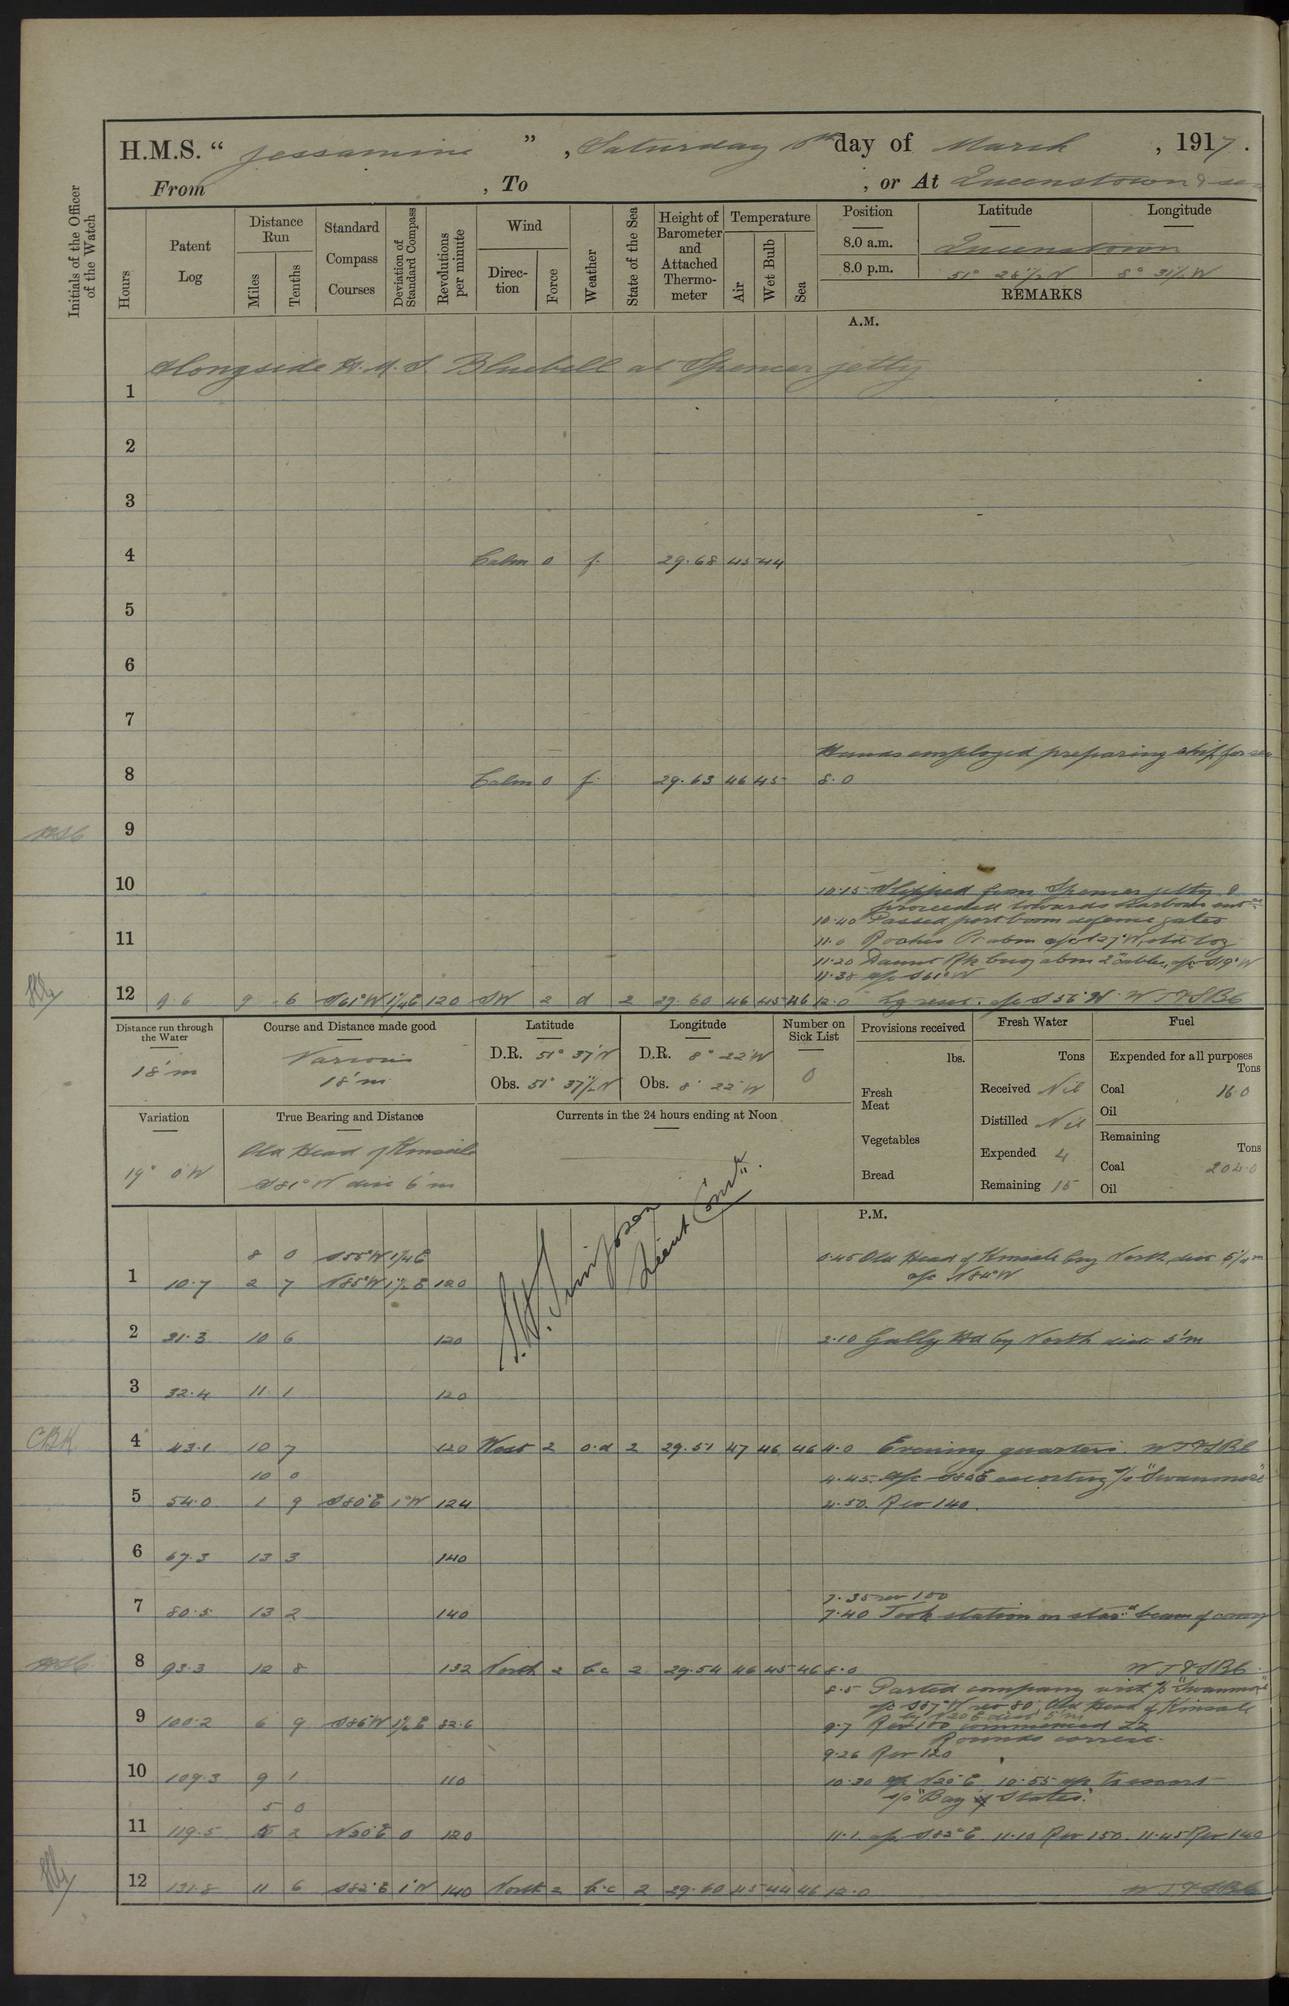 H.M.S. “ Jessamine ” , Saturday day of March , 1917 .
From , To , or At Queenstown & sea
Initials of the Officer of the Watch
Hours
Patent Log
Distance Run
Miles
Tenths
Standard Compass Courses
Deviation of Standard Compass
Revolutions per minute
Wind
Direction
Force
Weather
State of the Sea
Height of Barometer and Attached Thermometer
Temperature
Air
Wet Bulb
Sea
Position Latitude Longitude
8.0 a.m. Queenstown
8.0 p.m. 51° 26½ N 8° 31½ W
REMARKS
A.M.
Alongside H.M.S. Bluebell at Spencer jetty
1
2
3
4 Calm 0 f. 29.68 45 44
5
6
7
Hands employed preparing ship for sea
8 Calm 0 f. 29.63 46 45 8.0
9
10
10.15 Slipped from Spencer jetty &
proceeded towards Harbour
10.40 Passed port boom defence gates
11
11.0 Roches Pt abm
11.20 Daunt Rk buoy abm 2 cables, a/c S19°W
11.38 a/c S61°W
12 9.6 9 6 S61°W 1¼E 120 SW 2 d 2 29.60 46 45 46 12.0 a/c S56°W. WT&SBC
Distance run through the Water
18'm
Course and Distance made good
Various
18'm
Latitude
D.R. 51° 37'N
Obs. 51° 37½N
Longitude
D.R. 8° 22'W
Obs. 8° 22'W
Number on Sick List
0
Provisions received
lbs.
Fresh Meat
Vegetables
Bread
Fresh Water
Tons
Received Nil
Distilled Nil
Expended 4
Remaining 15
Fuel
Expended for all purposes
Tons
Coal 16.0
Oil
Remaining
Tons
Coal 204.0
Oil
Variation
19° 0'W
True Bearing and Distance
Old Head of Kinsale
S81°W dist 6'm
Currents in the 24 hours ending at Noon
Lieut Comdr.
P.M.
8 0 S55°W 1¼E 0.45 Old Head of Kinsale brg North dist
1 10.7 2 7 N85°W 1½E 120 a/c
2 21.3 10 6 120 2.10 Gally Hd brg North dist 5'm
3 32.4 11 1 120
CBH
4 43.1 10 7 120 West 2 o.d 2 29.51 47 46 46 4.0 Evening quarters. WT&SBC
10 0 4.45. a/c S80E escorting s/s "Swanmore"
5 54.0 1 9 S80°E 1°W 124 4.50. Rev 140.
6 67.3 13 3 140
7.35 rev 100
7 80.5 13 2 140 7.40 Took station on star'd beam of convoy
8 93.3 12 8 132 North 2 b.c 2 29.54 46 45 46 8.0 WT&SBC.
8.5 Parted company with s/s "Swanmore"
a/c S87°W rev 80, Old Head of Kinsale
brg N20E dist 5'm
9 100.2 6 9 S86°W 1½E 82.6 9.7 Rev 100 commenced ZZ
Rounds correct.
9.26 Rev 120
10 109.3 9 1 110 10.30 a/c N20°E 10.55 a/c to escort
5 0 s/s "Bay of States"
11 119.5 5 2 N20°E 0 120 11.1. a/c S82°E. 11.10 Rev 150. 11.45 Rev 140
12 131.8 11 6 S82°E 1°W 140 North 2 b.c 2 29.60 45 44 46 12.0 WT&SBC